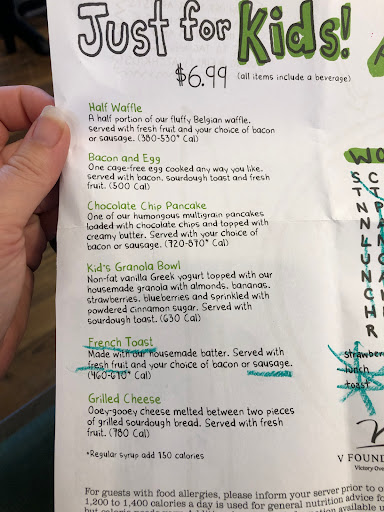 Just for Kids!
$6.99 (all items include a beverage)
Half Waffle
A half portion of our fluffy Belgian waffle,
served with fresh fruit and your choice of bacon
or sausage. (380-530* Cal)
Bacon and Egg
One cage-free egg cooked any way you like,
served with bacon, sourdough toast and fresh
fruit. (500 Cal)
Chocolate Chip Pancake
One of our humongous multigrain pancakes
loaded with chocolate chips and topped with
creamy butter. Served with your choice of
bacon or sausage. (720-870* Cal)
Kid's Granola Bowl
Non-fat vanilla Greek yogurt topped with our
housemade granola with almonds, bananas,
strawberries, blueberries and sprinkled with
powdered cinnamon sugar. Served with
sourdough toast. (630 Cal)
French Toast
Made with our housemade batter. Served with
fresh fruit and your choice of bacon or sausage.
(460-610* Cal)
Grilled Cheese
Ooey-gooey cheese melted between two pieces
of grilled sourdough bread. Served with fresh
fruit. (780 Cal)
*Regular syrup add 150 calories
WO
S C
T
N
N
L
U
N
C
H
R
strawberr
lunch
toast
V FOUND
Victory Ove
For guests with food allergies, please inform your server prior to o
1,200 to 1,400 calories a day is used for general nutrition advice f